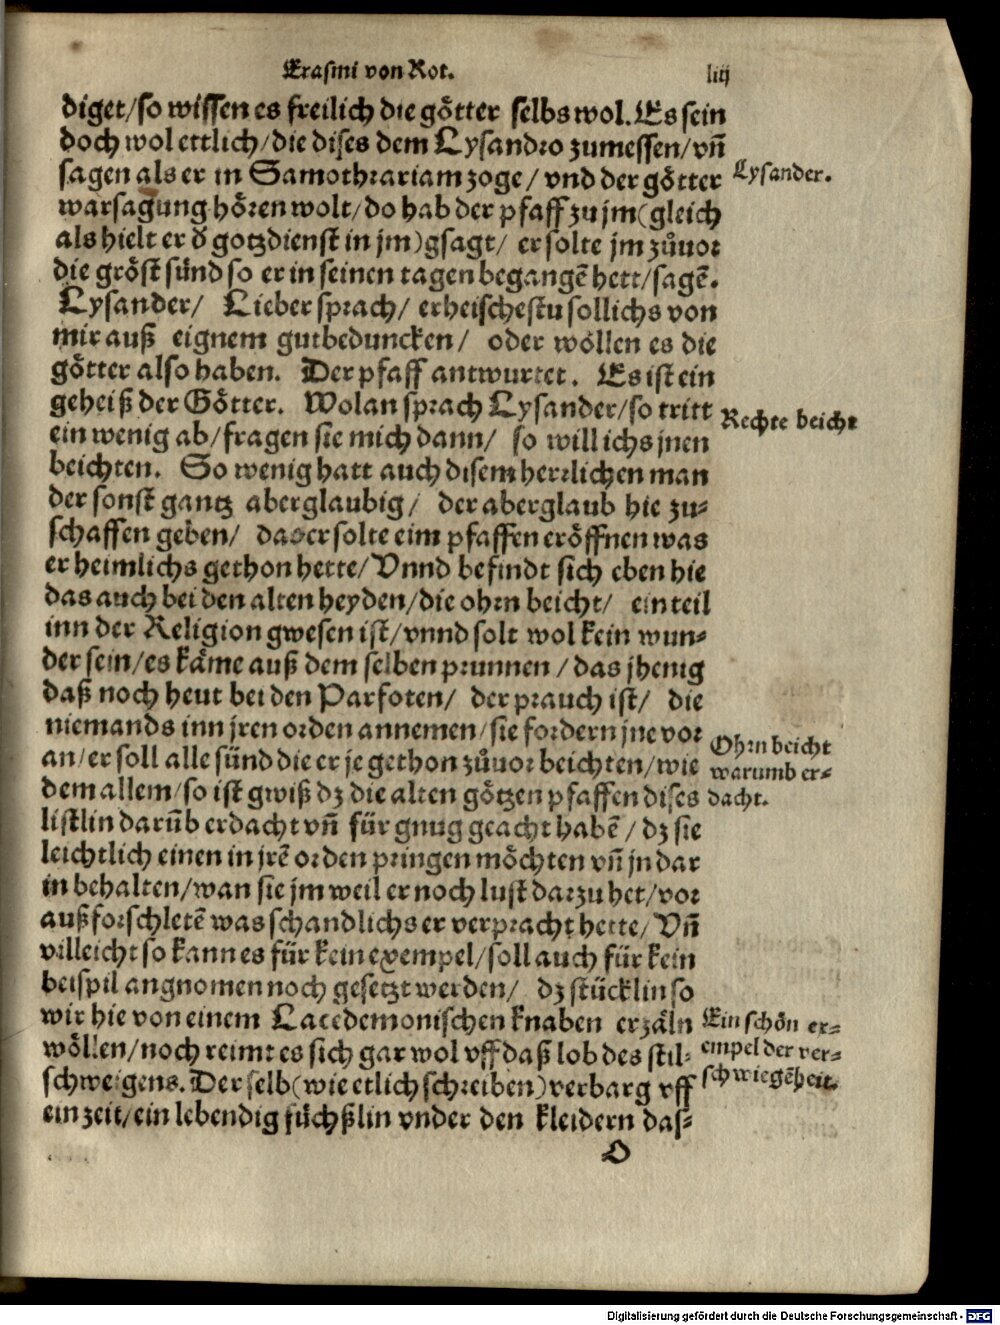 Erasmi von Rot. liij
diget/so wissen es freilich die götter selbs wol. Es sein
doch wol ettlich/die dises dem Lysandro zumessen/vñ
sagen als er in Samothrariam zoge/vnd der götter
Lysander.
warsagung hören wolt/do hab der pfaff zu jm(gleich
als hielt er d̄ gotzdienst in jm)gsagt/ er solte jm zůuor
die gröst sünd so er in seinen tagen begangē hett/sagē.
Lysander/ Lieber sprach/ erheischestu sollichs von
mir auß eignem gutbeduncken/ oder wöllen es die
götter also haben. Der pfaff antwurtet. Es ist ein
geheiß der Götter. Wolan sprach Lysander/so tritt
Rechte beicht
ein wenig ab/fragen sie mich dann/ so will ichs jnen
beichten. So wenig hatt auch disem herrlichen man
der sonst gantz aberglaubig/ der aberglaub hie zu-
schaffen geben/ das er solte eim pfaffen eröffnen was
er heimlichs gethon hette/Vnnd befindt sich eben hie
das auch bei den alten heyden/die ohrn beicht/ ein teil
inn der Religion gwesen ist/vnnd solt wol kein wun-
der sein/es käme auß dem selben prunnen/das jhenig
daß noch heut bei den Parfoten/ der prauch ist/ die
niemands inn jren orden annemen/sie fordern jne vor
Ohrn beicht
an/er soll alle sünd die er je gethon zůuor beichten/wie
warumb er-
dem allem/so ist gwiß dz die alten götzen pfaffen dises
dacht.
listlin darüb erdacht vñ für gnug geacht habē/dz sie
leichtlich einen in jrē orden pringen möchten vñ jn dar
in behalten/wan sie jm weil er noch lust darzu het/vor
auß forschletē was schandlichs er verpracht hette/Vñ
villeicht so kann es für kein exempel/soll auch für kein
beispil angnomen noch gesetzt werden/ dz stücklin so
wir hie von einem Lacedemonischen knaben erzäln
Ein schön ex-
wöllen/noch reimt es sich gar wol vff daß lob des stil-
empel der ver-
schweigens. Der selb(wie etlich schreiben)verbarg vff
schwiegēheit.
ein zeit/ein lebendig füchßlin vnder den kleidern das-
O
Digitalisierung gefördert durch die Deutsche Forschungsgemeinschaft - DFG